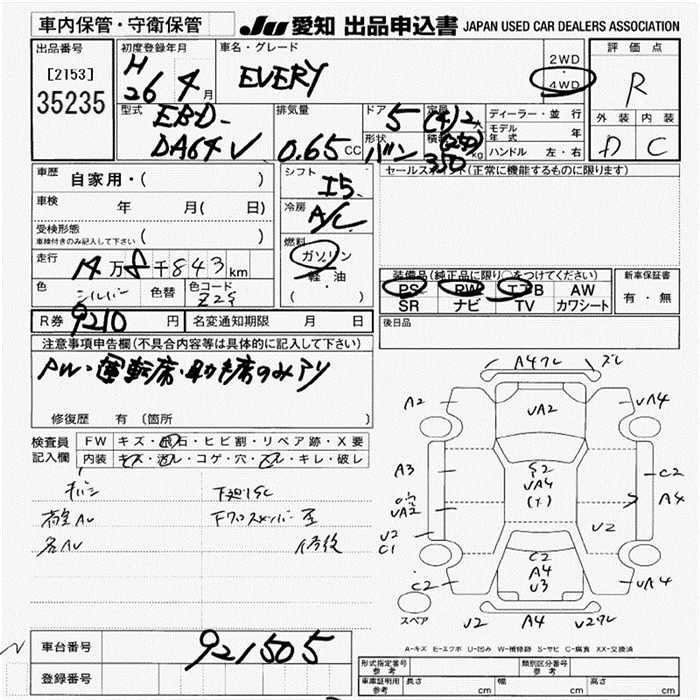 車内保管・守衛保管
JU 愛知 出品申込書 JAPAN USED CAR DEALERS ASSOCIATION
出品番号
[2153]
35235
初度登録年月
H
26 4 月
車名・グレード
EVERY
2WD
・
4WD
評価点
R
外装 内装
D C
型式
EBD-
DA64V
排気量
0.65 CC
ドア 5
形状
バン
定員
(4)2 人
積載
(250)
350 kg
ディーラー・並 行
モデル年式 年
ハンドル 左・右
車歴
自家用・( )
車検
年 月( 日)
受検形態
車検付きのみ記入して下さい ( )
走行
14 万 8 千 843 km
色
シルバー
色替
色コード
Z2S
シフト
I5
冷房
A/C
燃料
ガソリン
軽 油
( )
セールスポイント(正常に機能するものに限ります)
装備品(純正品に限り○をつけてください)
PS PW エアB AW
SR ナビ TV カワシート
新車保証書
有・無
R券 9210 円
名変通知期限 月 日
後日品
注意事項申告欄(不具合内容等は具体的に記入して下さい)
PW・運転席・助手席のみアリ
修復歴 有 〔箇所 〕
検査員
記入欄
FW キズ・飛石・ヒビ割・リペア跡・X要
内装 キズ・汚レ・コゲ・穴・スレ・キレ・破レ
荷室AU
各AU
下廻りSC
修復
A4クレ ズレ
A2
UA2
UA4
A3
S2
UA4
C2
A4
UA2
U2
C1
U2
C2
A4
U3
C2
UA4
スペア
U2
A4
A-キズ E-エクボ U-凹み W-補修跡 S-サビ C-腐食 XX-交換済
車台番号 921505
登録番号
形式指定番号
参考
類別区分番号
参考
車庫証明用
参考
長さ cm
幅 cm
高さ cm